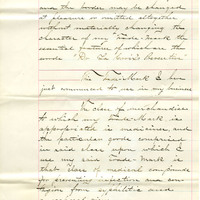 and the border may be changed
at pleasure or omitted altogether
without materially changing the
character of my Trade-Mark the
essential feature of which are the
words
This Trade-Mark I have
just commenced to use in my business
The class of merchandise
to which my Trade-Mark is
appropriated is medicines, and
the particular goods comprised
in said class upon which I
use my said Trade-Mark is
that class of medical compounds
for preventing infection and con-
tagion from syphilitic and